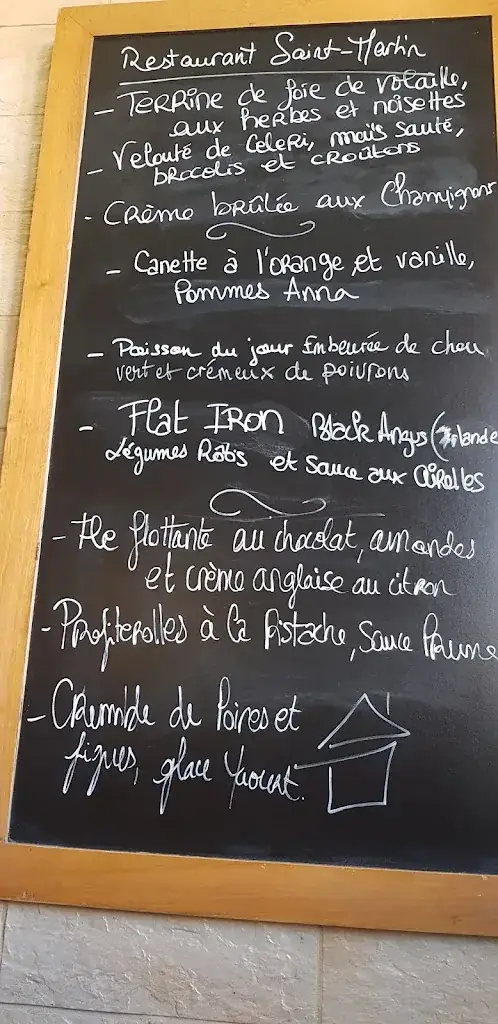 Restaurant Saint-Martin
- Terrine de foie de volaille,
aux herbes et noisettes
- Velouté de Celeri, maïs sauté,
brocolis et croûtons
- Crème brûlée aux Champignons
- Canette à l'orange et vanille,
Pommes Anna
- Poisson du jour Embeurée de chou
vert et crémeux de poivrons
- Flat Iron Black Angus (Irlande
Légumes Rôtis et sauce aux Airelles
- Ile flottante au chocolat, amandes
et crème anglaise au citron
- Profiterolles à la Pistache, Sauce Prune
- Crumble de Poires et
figues, glace Yaourt.